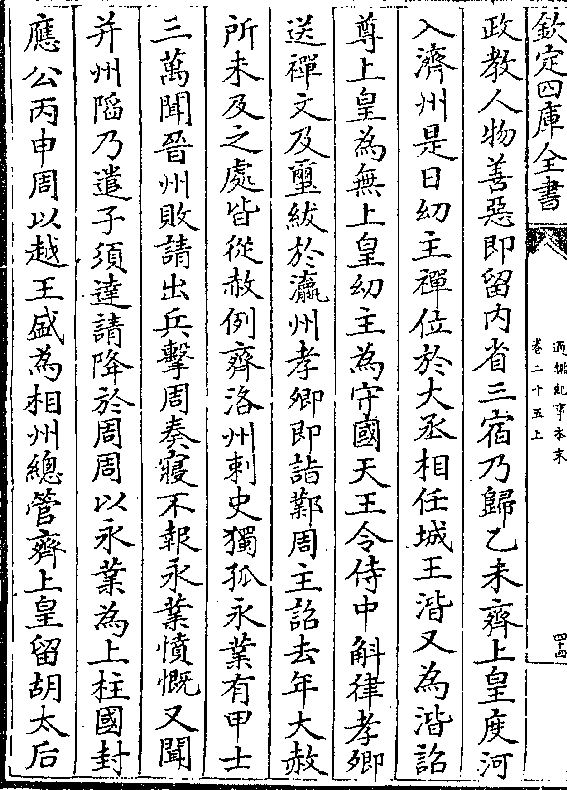 欽定四庫全書
通鑑紀事本末
卷二十五上
四十四
政教人物善惡即留内省三宿乃歸乙未齊上皇度河
入濟州是日幼主禪位於大丞相任城王湝又為湝詔
尊上皇為無上皇幼主為守國天王令侍中斛律孝卿
送禪文及璽紱於瀛州孝卿即詣鄴周主詔去年大赦
所未及之處皆從赦例齊洛州刺史獨孤永業有甲士
三萬聞晉州敗請出兵擊周奏寢不報永業憤慨又聞
并州䧟乃遣子須達請降於周周以永業為上柱國封
應公丙申周以越王盛為相州總管齊上皇留胡太后